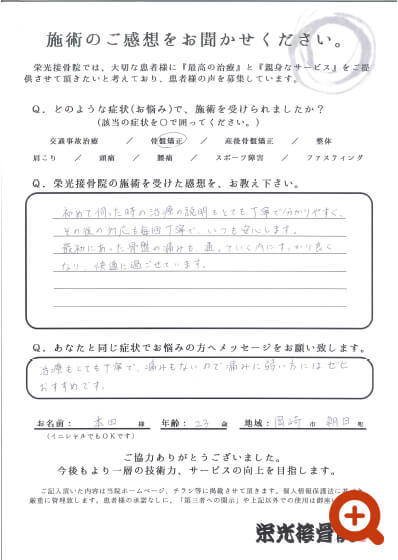 施術のご感想をお聞かせください。
栄光接骨院では、大切な患者様に『最高の治療』と『親身なサービス』をご提
供させて頂きたいと考えており、患者様の声を募集しています。
Q. どのような症状(お悩み)で、施術を受けられましたか?
(該当の症状を○で囲ってください。)
交通事故治療 / 骨盤矯正 / 産後骨盤矯正 / 整体
肩こり / 頭痛 / 腰痛 / スポーツ障害 / ファスティング
Q. 栄光接骨院の施術を受けた感想を、お教え下さい。
初めて伺った時の治療の説明もとても丁寧で分かりやすく、
その後の対応も毎回丁寧で、いつも安心します。
最初にあった骨盤の痛みも、通っていく内にすっかり良く
なり、快適に過ごせています。
Q. あなたと同じ症状でお悩みの方へメッセージをお願い致します。
治療もとても丁寧で、痛みもないので痛みに弱い方にはぜひ
おすすめです。
お名前: 本田 様 年齢: 23 歳 地域: 岡崎 市 朝日 町
(イニシャルでもOKです)
ご協力ありがとうございました。
今後もより一層の技術力、サービスの向上を目指します。
ご記入頂いた内容は当院ホームページ、チラシ等に掲載させて頂きます。個人情報保護法に基づき
厳重に管理致します。患者様の承諾なしに、「第三者への開示」や上記以外での使用は御座い
栄光接骨院